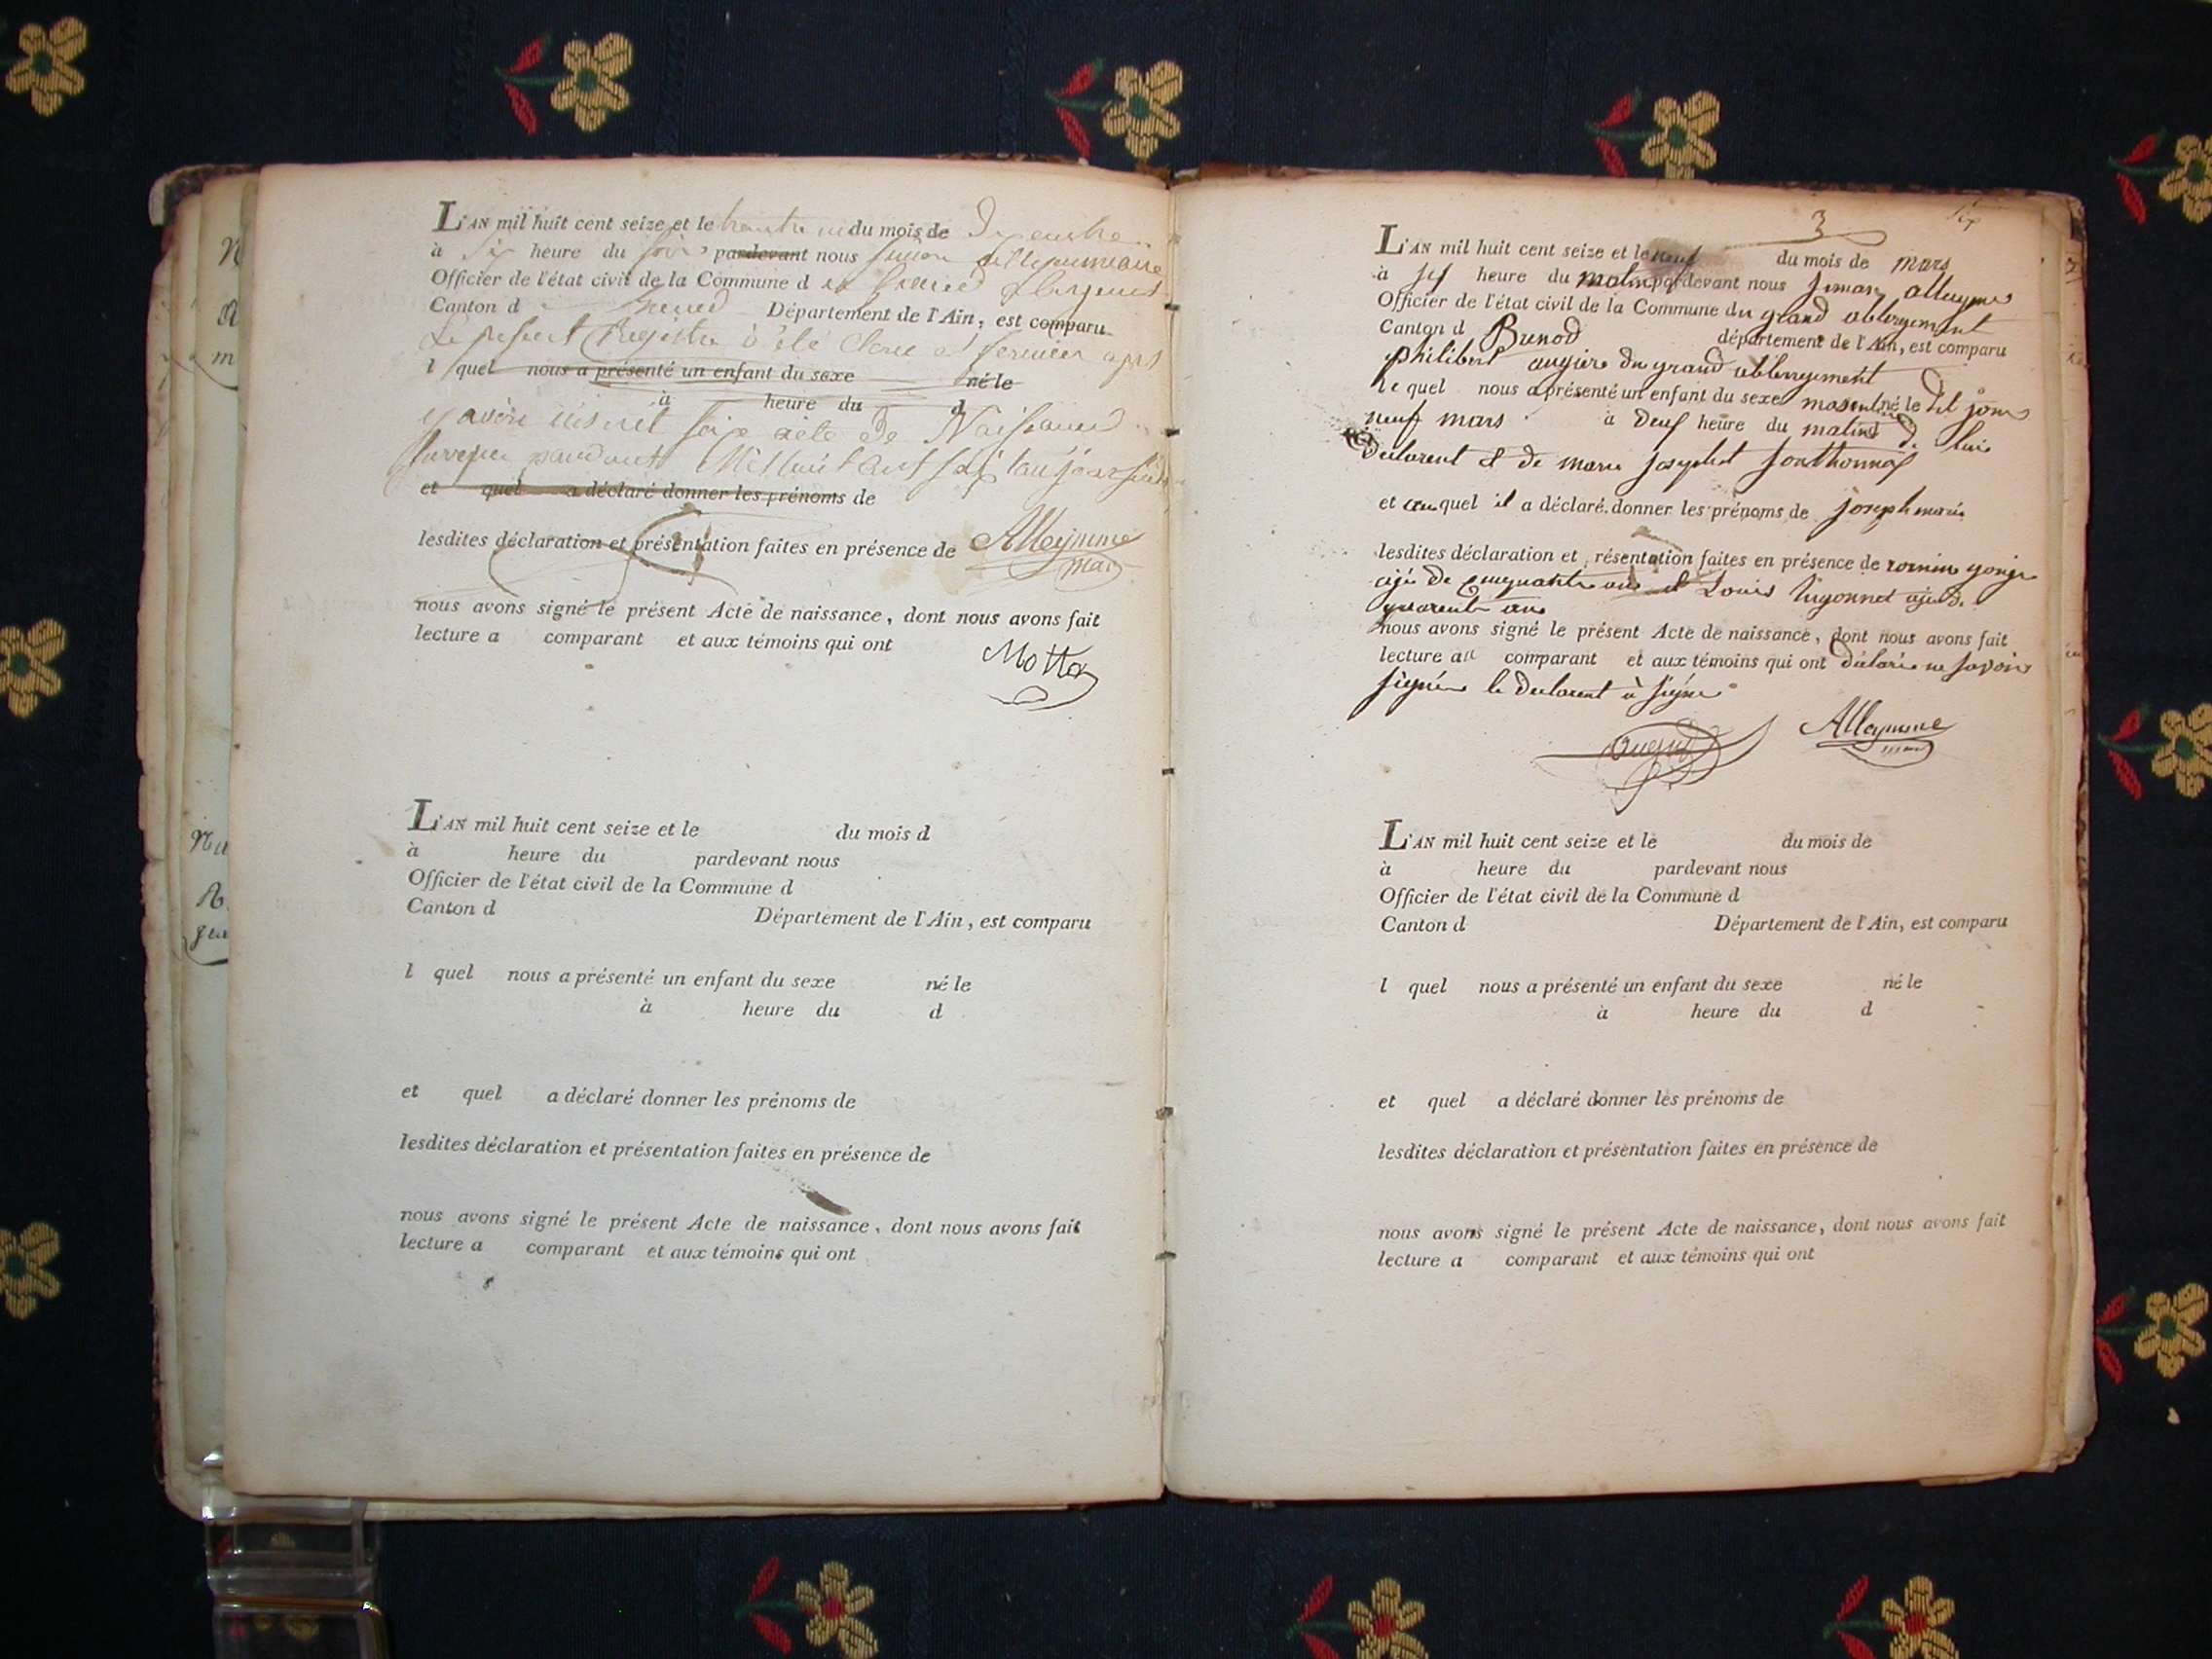 L'AN mil huit cent seize et le trente un du mois de Decembre
à Six heure du soir pardevant nous Simon alleymme maire
Officier de l'état civil de la Commune d
Canton d Département de l'Ain, est comparu
Le present Registre à été clorre et
l quel nous a présenté un enfant du sexe né le
à heure du d
y avoir inscrit seize acte de Naissance
mil huit cent seize
et quel a déclaré donner les prénoms de
lesdites déclaration et présentation faites en présence de Alleymme
maire
nous avons signé le présent Acte de naissance, dont nous avons fait
lecture a comparant et aux témoins qui ont
Mottet
L'AN mil huit cent seize et le du mois d
à heure du pardevant nous
Officier de l'état civil de la Commune d
Canton d Département de l'Ain, est comparu
l quel nous a présenté un enfant du sexe né le
à heure du d
et quel a déclaré donner les prénoms de
lesdites déclaration et présentation faites en présence de
nous avons signé le présent Acte de naissance, dont nous avons fait
lecture a comparant et aux témoins qui ont
3 Six
L'AN mil huit cent seize et le neuf du mois de mars
à sis heure du matin pardevant nous simon alleyme
Officier de l'état civil de la Commune du grand abbergement
Canton d Brenod département de l'Ain, est comparu
philibert augiere du grand abbergement
le quel nous a présenté un enfant du sexe masculin né le dit jour
neuf mars à deus heure du matins de luis
declarent et de marie josephet jonthonnas
et auquel il a déclaré donner les prénoms de joseph marie
lesdites déclaration et présentation faites en présence de romin
agé de cinquante ans et Louis hugonnet agé de
quarente ans
nous avons signé le présent Acte de naissance, dont nous avons fait
lecture au comparant et aux témoins qui ont déclaré ne savoir
signer le declarent à signé
Alleymme
maire
L'AN mil huit cent seize et le du mois de
à heure du pardevant nous
Officier de l'état civil de la Commune d
Canton d Département de l'Ain, est comparu
l quel nous a présenté un enfant du sexe né le
à heure du d
et quel a déclaré donner les prénoms de
lesdites déclaration et présentation faites en présence de
nous avons signé le présent Acte de naissance, dont nous avons fait
lecture a comparant et aux témoins qui ont